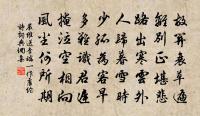 故關衰草遍
離別正堪悲
路出寒雲外
人歸暮雪時
少孤為客早
多難識君遲
掩泣空相向
風塵何所期
嚴維送李端一作盧綸